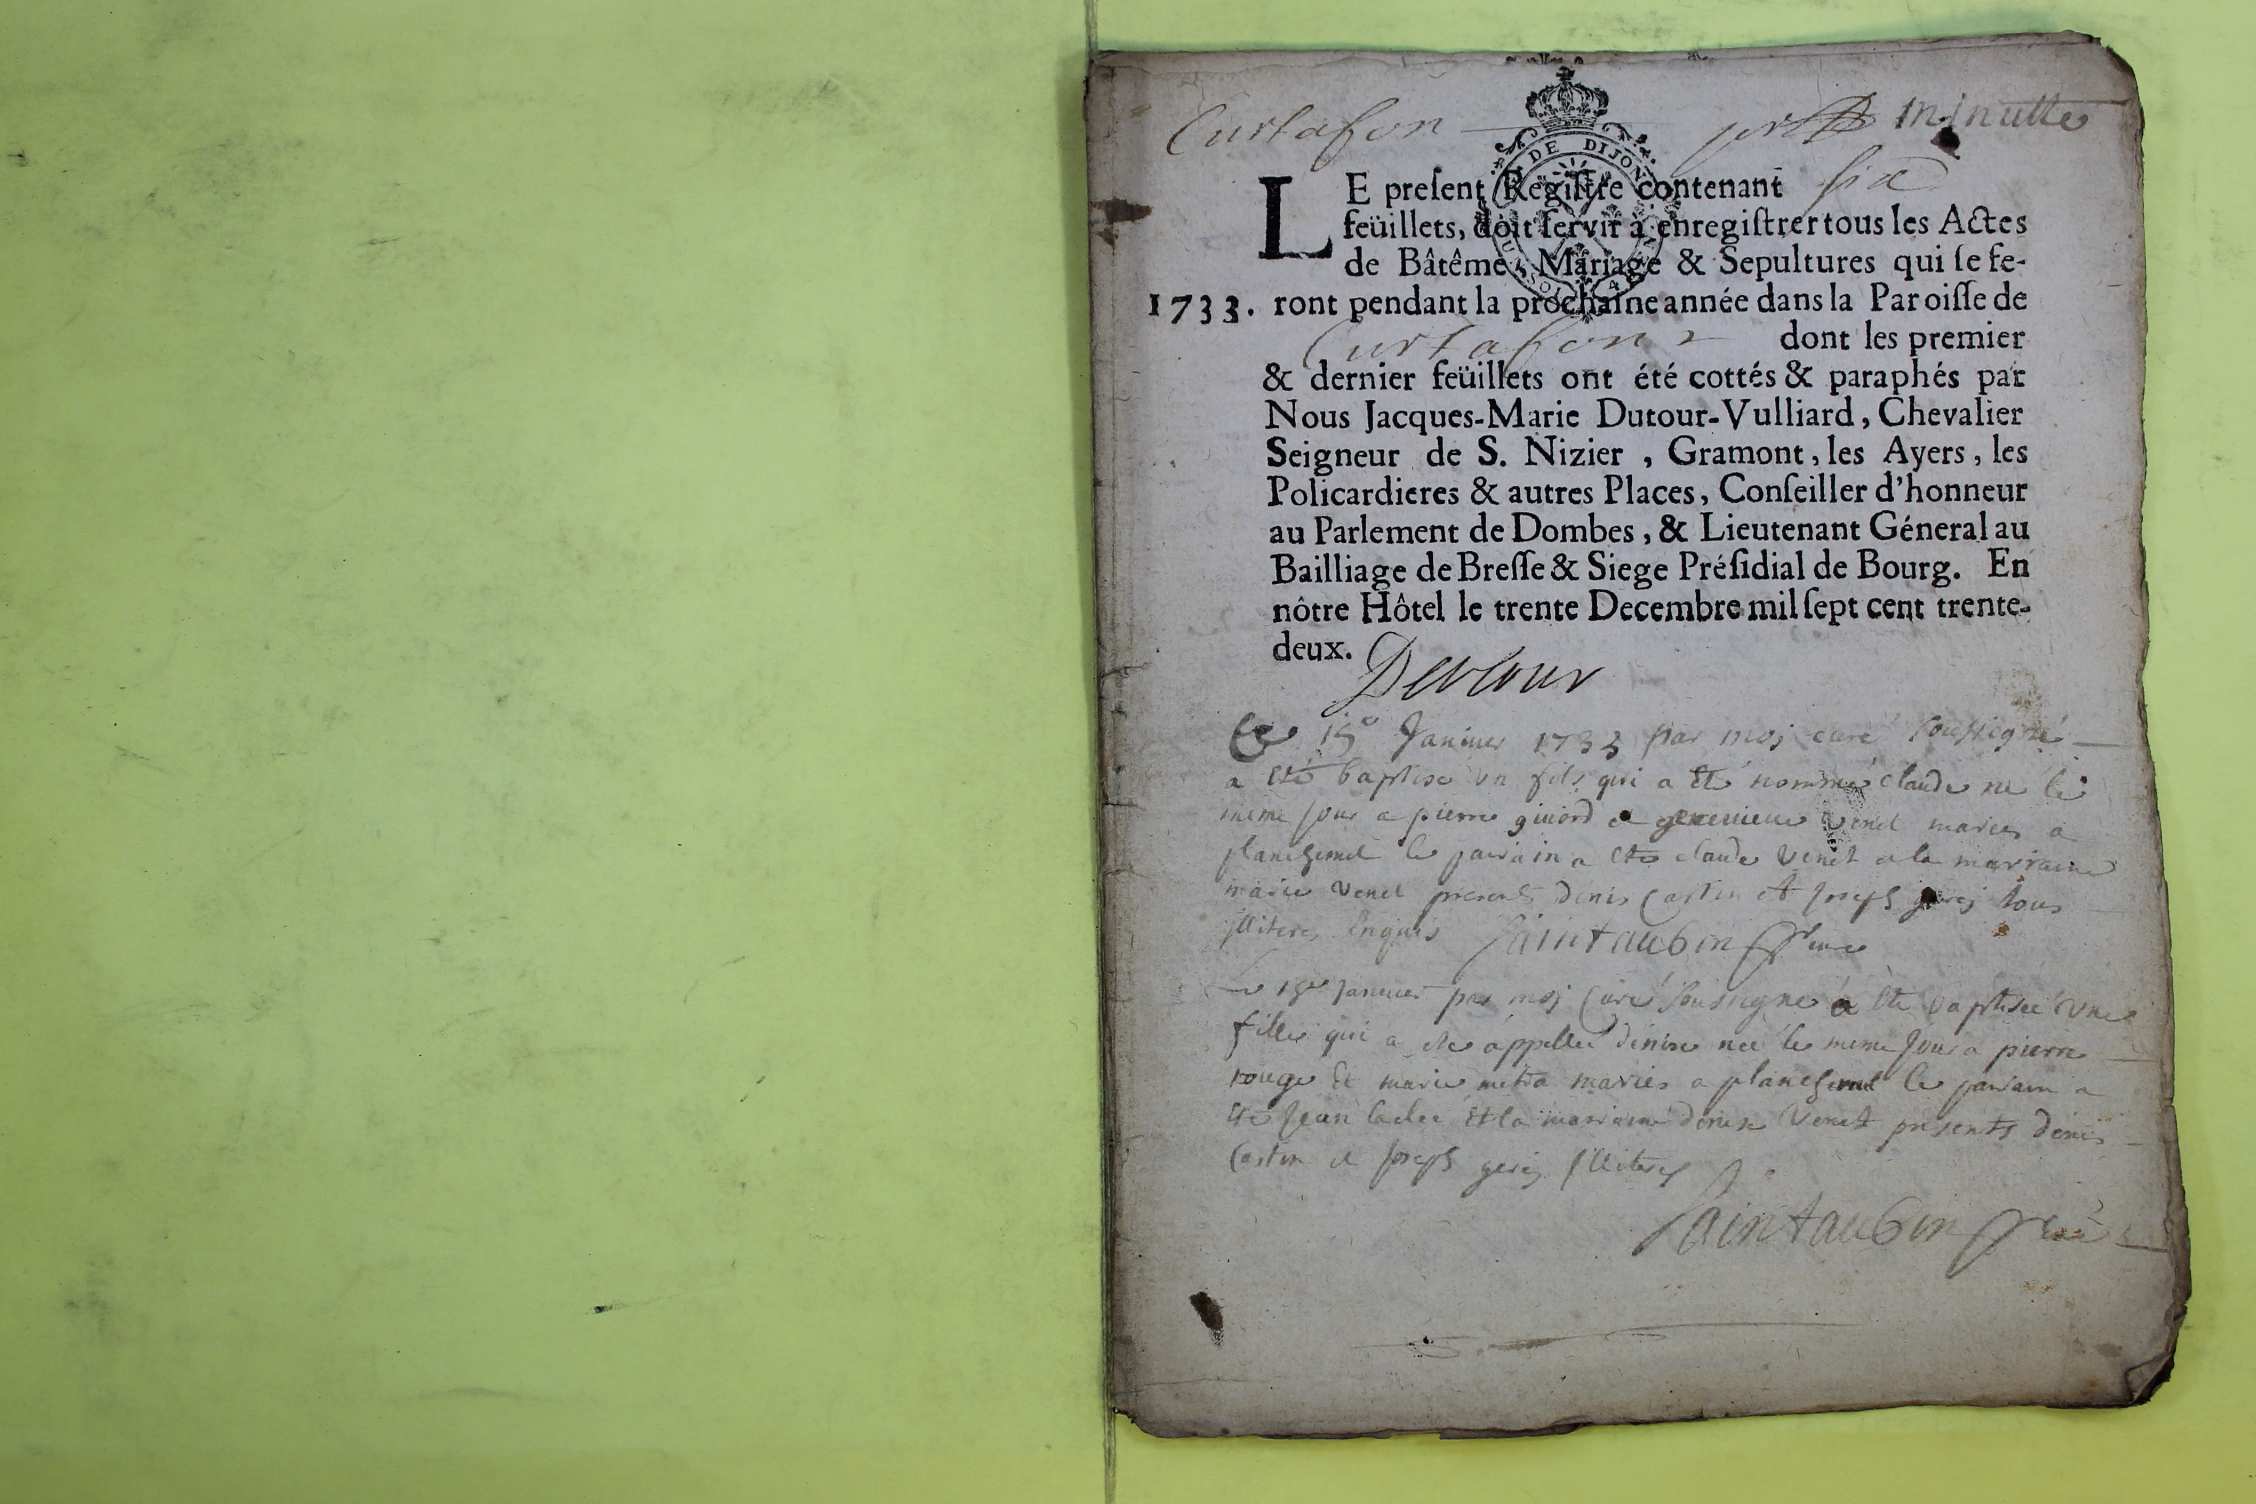 Curtafon minutte
DE DIJON
LE preſent Regiſtre contenant six
feüillets, doit ſervir à enregiſtrer tous les Actes
de Bâtême, Mariage & Sepultures qui ſe fe-
1733. ront pendant la prochaine année dans la Paroiſſe de
Curtafon dont les premier
& dernier feüillets ont été cottés & paraphés par
Nous Jacques-Marie Dutour-Vulliard, Chevalier
Seigneur de S. Nizier, Gramont, les Ayers, les
Policardieres & autres Places, Conſeiller d'honneur
au Parlement de Dombes, & Lieutenant Géneral au
Bailliage de Breſſe & Siege Préſidial de Bourg. En
nôtre Hôtel le trente Decembre mil ſept cent trente-
deux.
Dutour
Ce 15e Janvier 1733 par moj curé soussigné
a été baptise un fils qui a eté nommé claude ne le
meme jour a pierre givord et genevieve venet maries a
planchemel le parrain a ete claude venet et la marraine
marie venet presents denis Castin et joseph tous
illiteres enquis Saintaubin curé
Le 15e janvier par moj Curé soussigné a ete baptisée une
fille qui a ete appellée denise née le meme jour a pierre
rouge et marie maries a planchemel le parrain a
ete jean et la marraine denise Venet presents denis
Castin et joseph illiteres
Saintaubin curé